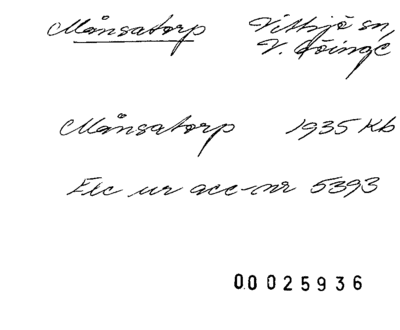 Månsatorp Vittsjö sn,
V. Göinge
Månsatorp 1935 Kb
Exc ur acc-nr 5393
00025936